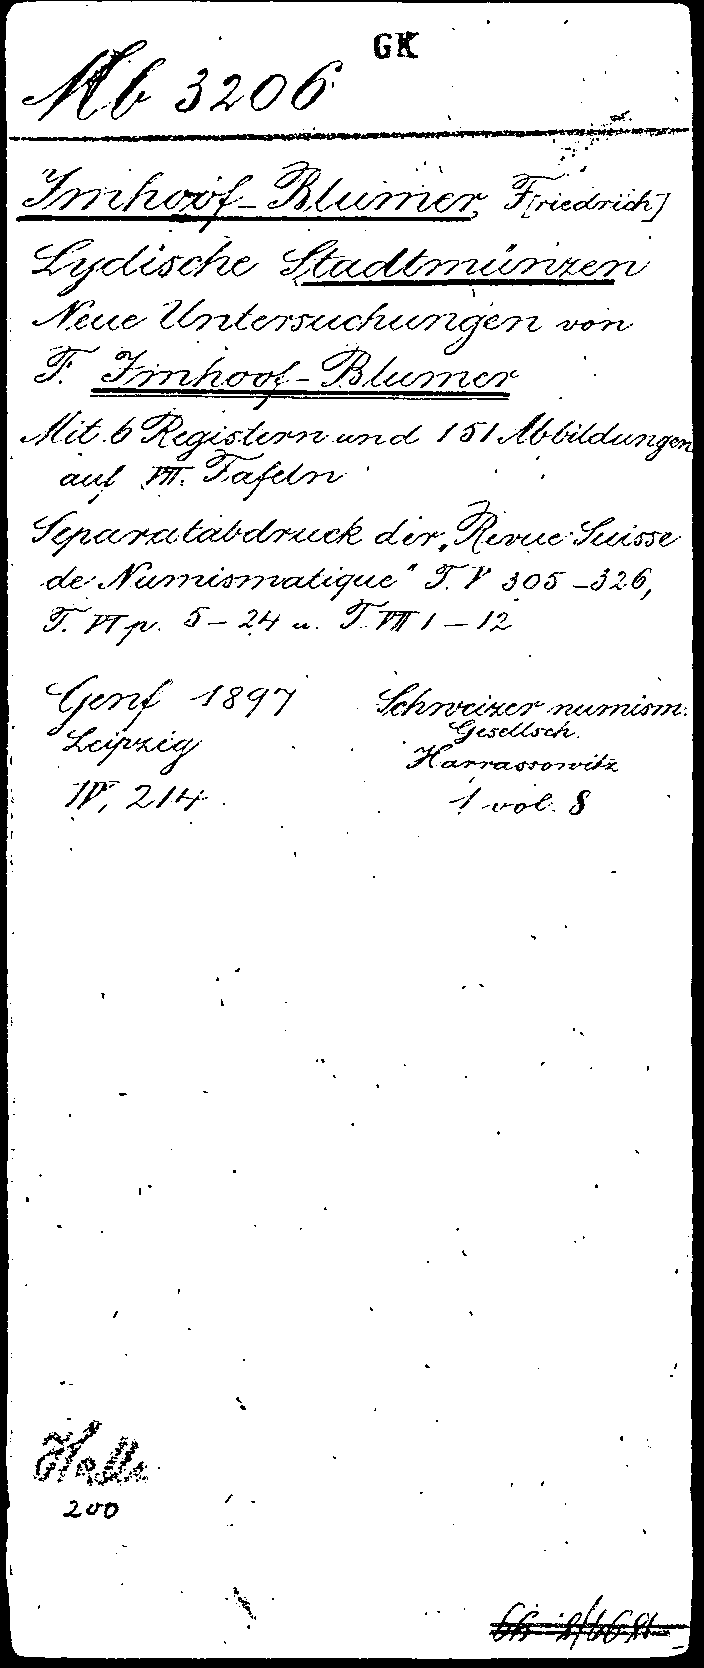 GK
Mb 3206
Imhoof-Blumer, F[riedrich]
Lydische Stadtmünzen
Neue Untersuchungen von
F. Imhoof-Blumer
Mit 6 Registern und 151 Abbildungen
auf VII. Tafeln
Separatabdruck der „Revue Suisse
de Numismatique" T. V 305-326,
T. VI p. 5-24 u. T. VII 1-12
Genf 1897 Schweizer numism.
Gesellsch.
Leipzig Harrassowitz
IV, 214 1 vol. 8
Halle
200